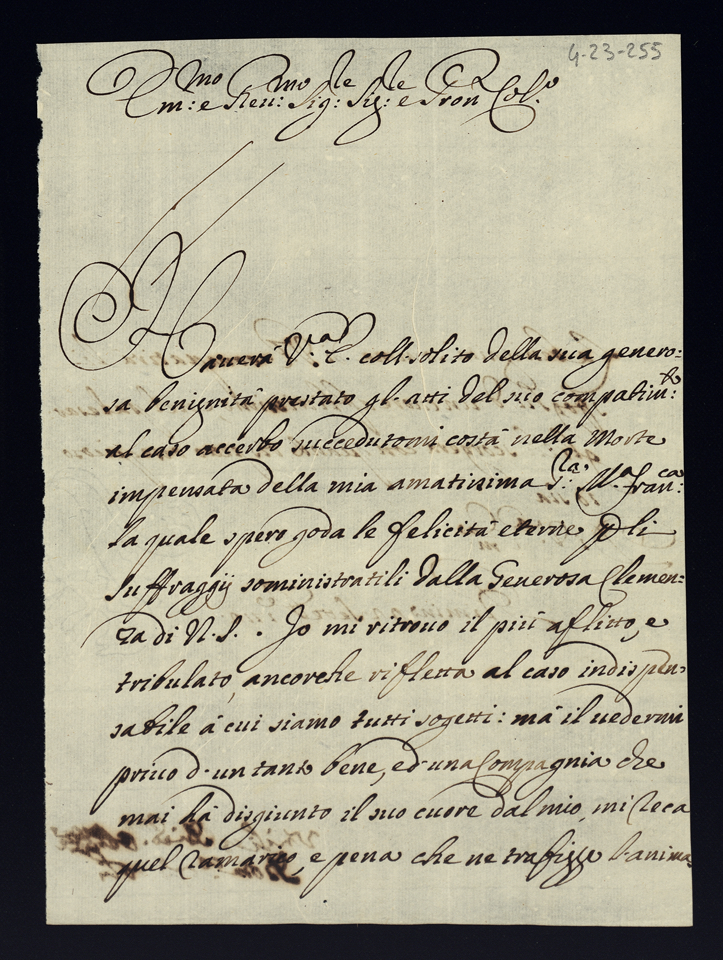 4-23-255
Em:mo e Reu:mo Sig:re Sig:re e Pron Col:o
Hauerà V:ra E. coll solito della sua genero=
sa benignità prestato gl'atti del suo compatim:to
al caso accerbo succedutomi costà nella Morte
impensata della mia amatissima S:ra M:a Fran:ca
la quale spero goda le felicità eterne p li
suffraggij soministratili dalla Generosa Clemen=
za di N. S. . Jo mi ritrouo il più aflitto, e
tribulato, ancorche rifletta al caso indispen
sabile à cui siamo tutti sogetti: mà il uedermi
priuo d'un tanto bene, ed una Compagnia che
mai hà disgiunto il suo cuore dal mio, mi reca
quel ramarico, e pena che ne trafigge l'anima